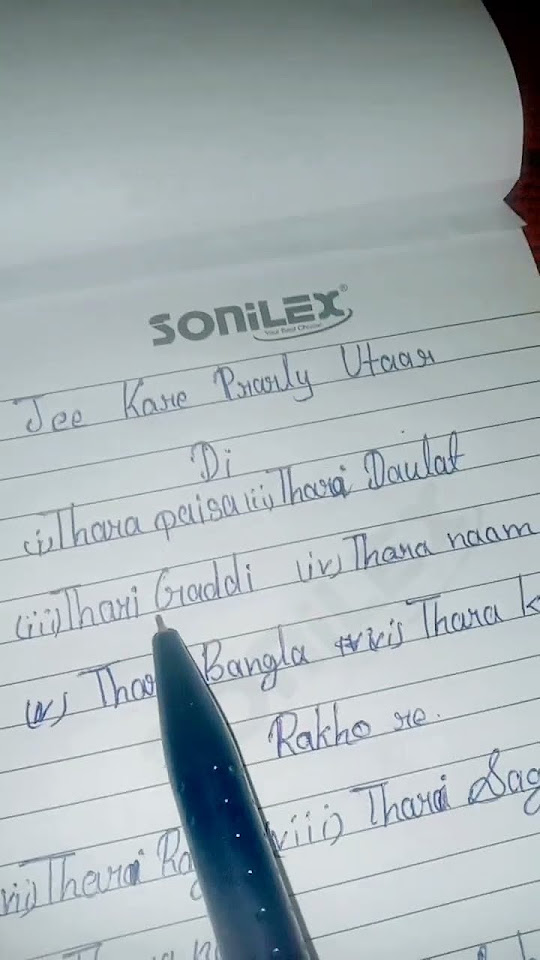 SONiLEX®
Your Best Choice
Jee Kare Prarly Utaar
Di
(i) Thara paisa (ii) Tharai Daulat
(iii) Thari Graddi (iv) Thara naam
(v) Bangla (vi) Thara k
Rakho re.
(vii) (viii) Tharai Sag